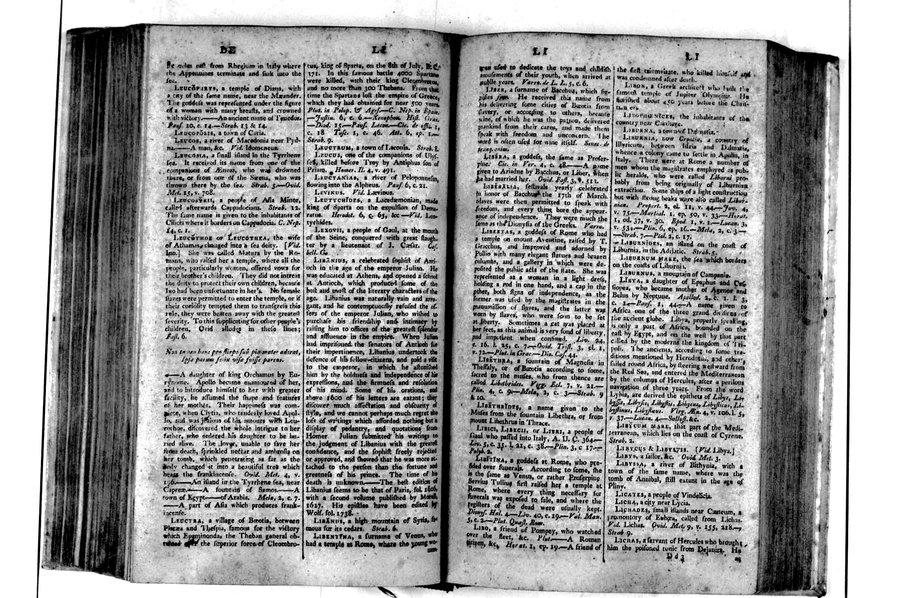 LE
LE
six miles east from Rhegium in Italy where
the Appenines terminate and sink into the
sea.
LEUCOPHRYS, a temple of Diana, with
a city of the same name, near the Mæander.
The goddess was represented under the figure
of a woman with many breasts, and crowned
with victory.——An ancient name of Tenedos.
Pauf. 10, c. 14.—Strab. 13 & 14.
LEUCOPOLIS, a town of Caria.
LEUCOS, a river of Macedonia near Pyd-
na.—A man, &c. Vid. Idomeneus.
LEUCOSIA, a small island in the Tyrrhene
sea. It received its name from one of the
companions of Æneas, who was drowned
there, or from one of the Sirens, who was
thrown there by the sea. Strab. 5.—Ovid.
Met. 15, v. 708.
LEUCOSYRII, a people of Asia Minor,
called afterwards Cappadocians. Strab. 12.
The same name is given to the inhabitants of
Cilicia where it borders on Cappadocia. C. Nep.
14, c. 1.
LEUCOTHOE or LEUCOTHEA, the wife
of Athamas, changed into a sea deity. [Vid.
Ino.] She was called Matura by the Ro-
mans, who raised her a temple, where all the
people, particularly women, offered vows for
their brother's children. They did not intreat
the deity to protect their own children, because
Ino had been unfortunate in her's. No female
slaves were permitted to enter the temple, or if
their curiosity tempted them to transgress this
rule, they were beaten away with the greatest
severity. To this supplicating for other people's
children, Ovid alludes in these lines;
Fast. 6.
—A daughter of king Orchamus by Eu-
rynome. Apollo became enamoured of her,
and to introduce himself to her with greater
facility, he assumed the shape and features
of her mother. Their happiness was com-
plete, when Clytia, who tenderly loved Apol-
lo, and was jealous of his amours with Leu-
cothoe, discovered the whole intrigue to her
father, who ordered his daughter to be bu-
ried alive. The lover, unable to save her
from death, sprinkled nectar and ambrosia on
her tomb, which penetrating as far as the
body changed it into a beautiful tree which
bears the frankincense. Ovid. Met. 4, v.
196.——An island in the Tyrrhene sea, near
Capreæ.——A fountain of Samos.——A
town of Egypt——of Arabia. Mela, 2, c. 7.
——A part of Asia which produces frank-
incense.
LEUCTRA, a village of Bœotia, between
Platæa and Thespia, famous for the victory
which Epaminondas, the Theban general ob-
tained over the superior force of Cleombro-
tus, king of Sparta, on the 8th of July, B. C.
371. In this famous battle 4000 Spartans
were killed, with their king Cleombrotus,
and no more than 300 Thebans. From that
time the Spartans lost the empire of Greece,
which they had obtained for near 500 years.
Plut. in Pelop. & Ages.—C. Nep. in Epam.
—Justin. 6, c. 6.—Xenophon. Hist. Græc.
—Diod. 15.—Paus. Lacon.—Cic. de offic. 1,
c. 18 Tusc. 1, c. 46. Att. 6, ep. 1.—
Strab. 9.
LEUCTRUM, a town of Laconia. Strab. 8.
LEUCUS, one of the companions of Ulys-
ses, killed before Troy by Antiphus son of
Priam. Homer. Il. 4, v. 491.
LEUCYANIAS, a river of Peloponnesus,
flowing into the Alpheus. Paus. 6, c. 21.
LEVINUS. Vid. Lævinus.
LEUTYCHIDES, a Lacedæmonian, made
king of Sparta on the expulsion of Dema-
ratus. Herodot. 6, c. 65, &c —Vid. Leo-
tychides.
LEXOVII, a people of Gaul, at the mouth
of the Seine, conquered with great slaugh-
ter by a lieutenant of J. Cæsar. Cæs.
bell. G.
LIBANIUS, a celebrated sophist of Anti-
och in the age of the emperor Julian. He
was educated at Athens, and opened a school
at Antioch, which produced some of the
best and most of the literary characters of the
age. Libanius was naturally vain and arro-
gant, and he contemptuously refused the of-
fers of the emperor Julian, who wished to
purchase his friendship and intimacy by
raising him to offices of the greatest splendor
and affluence in the empire. When Julian
had imprisoned the senators of Antioch for
their impertinence, Libanius undertook the
defence of his fellow-citizens, and paid a visit
to the emperor, in which he astonished
him by the boldness and independence of his
expressions, and the firmness and resolution
of his mind. Some of his orations, and
above 1600 of his letters are extant; they
discover much affectation and obscurity of
style, and we cannot perhaps much regret the
loss of writings which afforded nothing but a
display of pedantry, and quotations from
Homer. Julian submitted his writings to
the judgment of Libanius with the greatest
confidence, and the sophist freely rejected
or approved, and shewed that he was more at-
tached to the person than the fortune and
greatness of his prince. The time of his
death is unknown.——The best edition of
Libanius seems to be that of Paris, fol. 1606,
with a second volume published by Morell,
1627. His epistles have been edited by
Wolf. fol. 1738.
LIBANUS, a high mountain of Syria, fa-
mous for its cedars. Strab. 6.
LIBENTINA, a surname of Venus, who
had a temple at Rome, where the young wo-
LI
LI
men used to dedicate the toys and childish
amusements of their youth, when arrived at
nubile years. Varro. de L. L. 5, c. 6.
LIBER, a surname of Bacchus, which sig-
nifies free. He received this name from
his delivering some cities of Bœotia from
slavery, or according to others, because
wine, of which he was the patron, delivered
mankind from their cares, and made them
speak with freedom and unconcern. The
word is often used for wine itself. Senec. de
tranq. anim.
LIBERA, a goddess, the same as Proser-
pine. Cic. in Ver. 4, c. 48.——A name
given to Ariadne by Bacchus, or Liber, when
he had married her. Ovid. Fast. 3, v. 513.
LIBERALIA, festivals yearly celebrated
in honor of Bacchus the 17th of March.
slaves were then permitted to speak with
freedom, and every thing bore the appear-
ance of independence. They were much the
same as the Dionysia of the Greeks. Varro.
LIBERTAS, a goddess of Rome who had
a temple on mount Aventine, raised by T.
Gracchus, and improved and adorned by
Pollio with many elegant statues and brazen
columns, and a gallery in which were de-
posited the public acts of the state. She was
represented as a woman in a light dress,
holding a rod in one hand, and a cap in the
other, both signs of independence, as the
former was used by the magistrates in the
manumission of slaves, and the latter was
worn by slaves, who were soon to be set
at liberty. Sometimes a cat was placed at
her feet, as this animal is very fond of liberty,
and impatient when confined. Liv. 24,
c. 16. l. 25, c. 7.—Ovid. Trist. 3, el. 1,
v. 72.—Plut. in Grac.—Dio. Cas. 44.
LIBETHRA, a fountain of Magnesia in
Thessaly, or of Bœotia according to some,
sacred to the muses, who from thence are
called Libethrides. Virg. Ecl. 7, v. 21.—
Plin. 4, c. 9.—Mela, 2, c. 3.—Strab. 9
& 10.
LIBETHRIDES, a name given to the
Muses from the fountain Libethra, or from
mount Libethrus in Thrace.
LIBICI, LIBECII, or LIBRI, a people of
Gaul who passed into Italy, A. U. C. 364.—
Liv. 5, c. 35. l. 21, c. 38.—Plin. 3, c 17.—
Polyb. 2.
LIBITINA, a goddess at Rome, who pre-
sided over funerals. According to some, she
is the same as Venus, or rather Proserpine.
Servius Tullius first raised her a temple at
Rome, where every thing necessary for
funerals was exposed to sale, and where the
registers of the dead were usually kept.
Dionys. Hal. 4.—Liv. 40, c. 19.—Val. Max.
5, c. 2.—Plut. Quæst. Rom.
LIBO, a friend of Pompey, who watched
over the fleet, &c. Plut.—A Roman
citizen, &c, Horat. 1, ep. 19.—A friend of
the first triumvirate, who killed himself and
was condemned after death.
LIBON, a Greek architect who built the
famous temple of Jupiter Olympius. He
flourished about 450 years before the Chris-
tian era.
LIBOPHŒNICES, the inhabitants of the
country near Carthage.
LIBURNA, a town of Dalmatia.
LIBURNIA, now Croatia, a country of
Illyricum, between Istria and Dalmatia,
whence a colony came to settle in Apulia, in
Italy. There were at Rome a number of
men whom the magistrates employed as pub-
lic heralds, who were called Liburni pro-
bably from being originally of Liburnian
extraction. Some ships of a light construction
but with strong beaks were also called Libur-
nian. Propert. 2, el. 11, v. 44.—Juv. 4,
v. 75.—Martial. 1, ep. 50, v. 33.—Horat.
1, od. 37, v. 30. Epod. 1, v. 1.—Lucan. 3,
v. 534.—Plin. 6, ep. 16.—Mela, 2, c. 3.—
—Strab. 7.—Ptol. 2, c. 17.
LIBURNIDES, an island on the coast of
Liburnia, in the Adriatic. Strab. 5.
LIBURNUM MARE, the sea which borders
on the coasts of Liburnia.
LIBURNUS, a mountain of Campania.
LIBYA, a daughter of Epaphus and Cas-
siopea, who became mother of Agenor and
Belus by Neptune. Apollod. 2, c. 1. l. 3,
c. 1.—Paus. 1, 44.——A name given to
Africa one of the three grand divisions of
the ancient globe. Libya, properly speaking,
is only a part of Africa, bounded on the
east by Egypt, and on the west by that part
called by the moderns the kingdom of Tri-
poli. The ancients, according to some tra-
ditions mentioned by Herodotus, and others,
sailed round Africa, by steering westward from
the Red Sea, and entered the Mediterranean
by the columns of Hercules, after a perilous
navigation of three years. From the word
Lybia, are derived the epithets of
Virg. Æn. 4, v. 106. l. 5,
v. 37.—Lucan. 4.—Sallust. &c.
LIBYCUM MARE, that part of the Medi-
terranean, which lies on the coast of Cyrene.
Strab. 2.
LIBYCUS & LIBYSTIS. [Vid. Libya.]
LIBYS, a sailor, &c. Ovid. Met. 3.
LIBYSSA, a river of Bithynia, with a
town of the same name, where was the
tomb of Annibal, still extant in the age of
Pliny.
LICATES, a people of Vindelicia.
LICHA, a city near Lycia.
LICHADES, small islands near Cæneum, a
promontory of Eubœa, called from Lichas.
Vid. Lichas. Ovid. Met. 9, v. 155, 218.—
Strab. 9.
LICHAS, a servant of Hercules who brought
him the poisoned tunic from Dejanira. He
D d 3